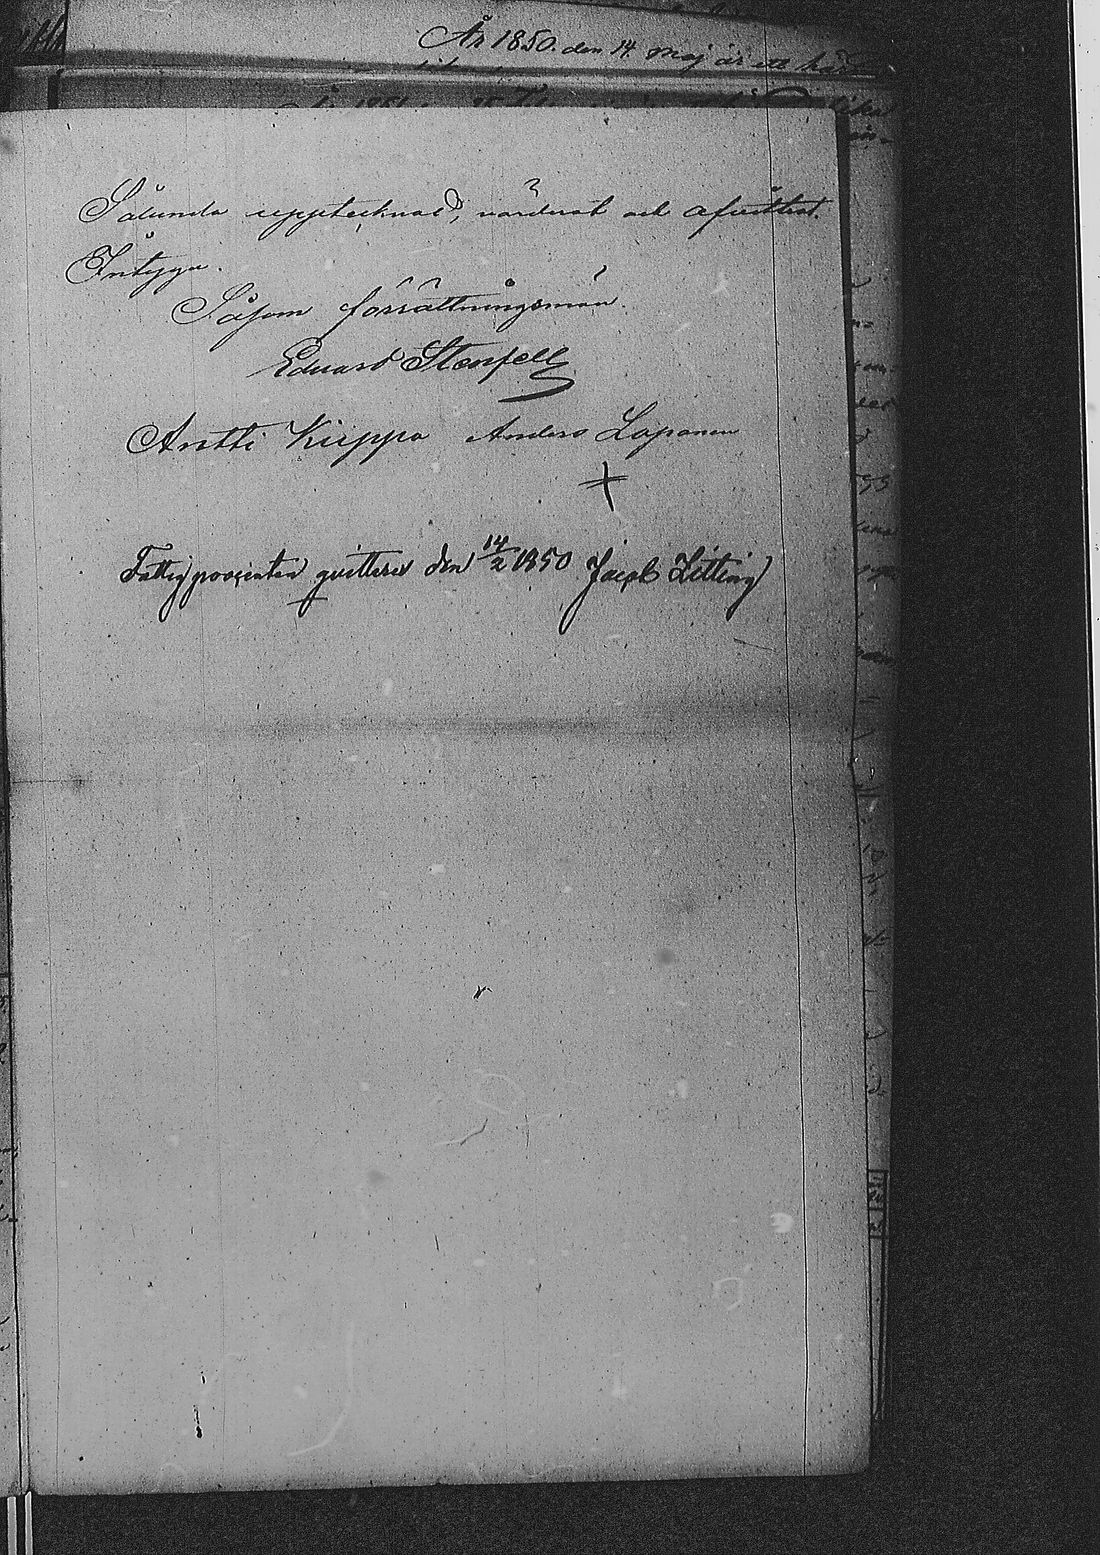 År 1850. den 14 Maj är ett
Sålunda upptecknad, värderat och afvittrat.
Intyga.
Såsom förrättningsmän.
Eduard Stenfell
Antti Kieppa Anders Laponen
Fattigprocenten qvitteras den 14/2 1850 Jacob Litting